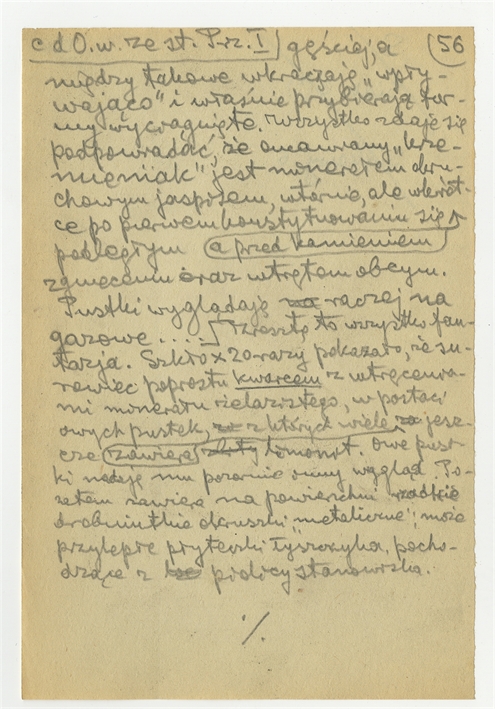 c d O. w. ze st. Prz. I gęściej, a (56
między takowe wkraczają „wpły-
wająco" i właśnie przybierają for-
my wyciągnięte. Wszystko zdaje się
podpowiadać, że omawiany „krze-
mieniak" jest minerałem okru-
chowym jaspisem, wtórnie, ale wkrót-
ce po pierwem konstytuowaniu się
podległym a przed kamieniem
zgnieceniu oraz wtrętom obcym.
Pustki wyglądają na raczej na
gazowe .... Zresztą to wszystko fan-
tazja. Szkło x 20-razy pokazało, że su-
rowiec poprostu kwarcem z wtrącenia-
mi minerału żelazistego, w postaci
owych pustek, z których wiele jesz-
cze zawiera limonyt. Owe pust-
ki nadają mu pozornie inny wygląd. Po-
zatem zawiera na powierzchni rzadkie
drobniutkie okruszki „metaliczne", może
przylepłe płyteczki łyszczyka, pocho-
dzące z okolicy stanowiska.
%